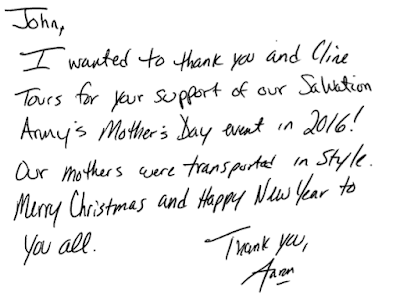 John,
I wanted to thank you and Cline
Tours for your support of our Salvation
Army's Mother's Day event in 2016!
Our mothers were transported in style.
Merry Christmas and Happy New Year to
you all.
Thank you,
Aaron